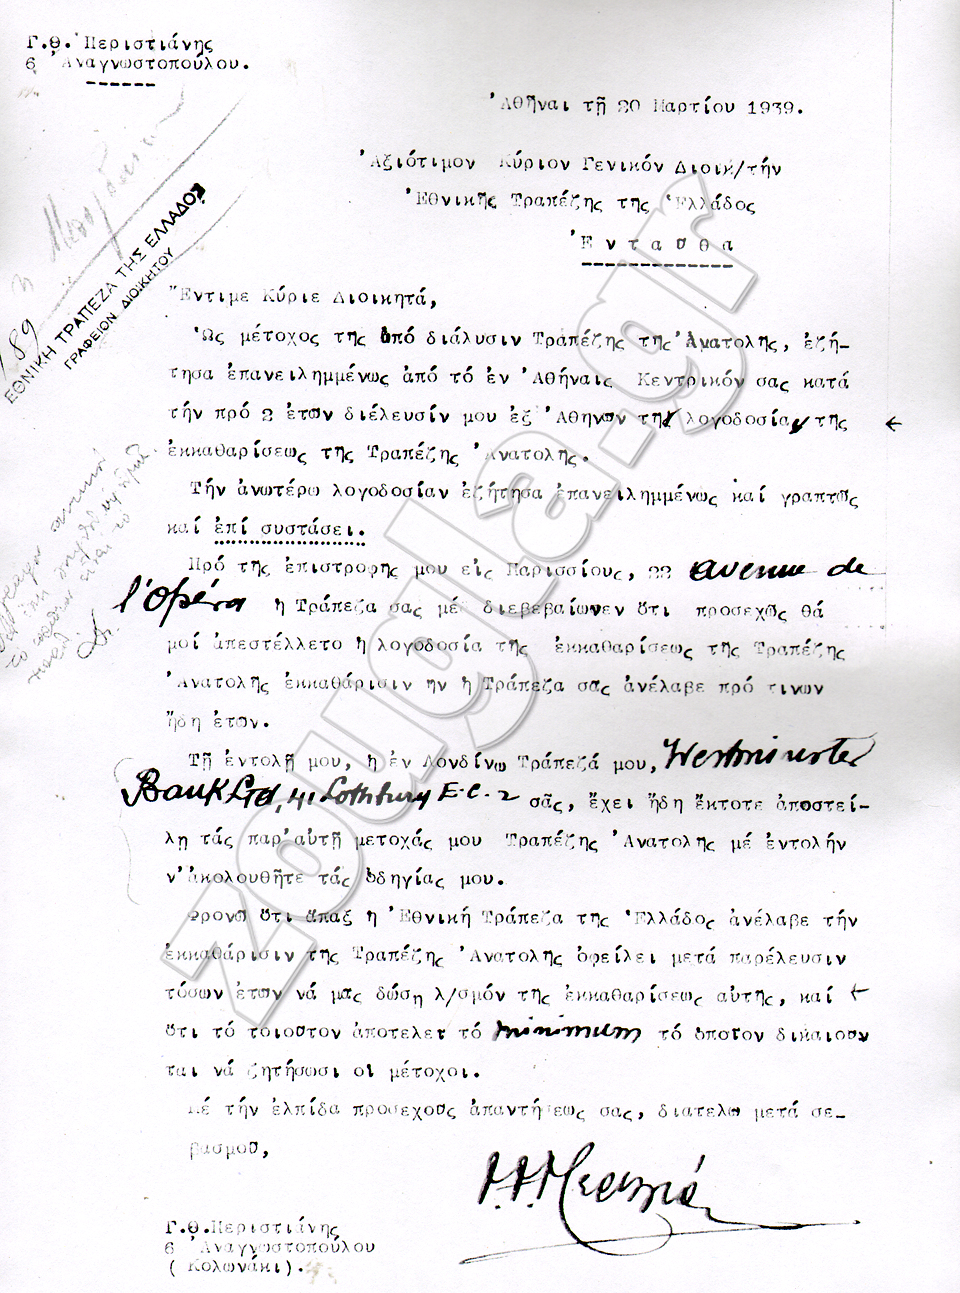 Γ.Θ.Περιστιάνης
6 Ἀναγνωστοπούλου.
Ἀθῆναι τῇ 20 Μαρτίου 1939.
Ἀξιότιμον Κύριον Γενικόν Διοικ/τήν
Ἐθνικῆς Τραπέζης της Ἑλλάδος
Ἐνταῦθα
ΕΘΝΙΚΗ ΤΡΑΠΕΖΑ ΤΗΣ ΕΛΛΑΔΟΣ
ΓΡΑΦΕΙΟΝ ΔΙΟΙΚΗΤΟΥ
Ἔντιμε Κύριε Διοικητά,
Ὡς μέτοχος της ὑπό διάλυσιν Τραπέζης της Ἀνατολης, ἐζή-
τησα ἐπανειλημμένως ἀπό τό ἐν Ἀθήναις Κεντρικόν σας κατά
τήν πρό 2 ἐτῶν διέλευσίν μου ἐξ Ἀθηνῶν τη λογοδοσία της
ἐκκαθαρίσεως της Τραπέζης Ἀνατολης.
Τήν ἀνωτέρω λογοδοσίαν ἐζήτησα ἐπανειλημμένως καί γραπτῶς
καί ἐπί συστάσει.
Πρό της ἐπιστροφης μου εἰς Παρισσίους, 22 avenue de
l'Opéra ἡ Τράπεζα σας μέ διεβεβαίωνεν ὅτι προσεχῶς θά
μοί ἀπεστέλλετο ἡ λογοδοσία της ἐκκαθαρίσεως της Τραπέζης
Ἀνατολης ἐκκαθάρισιν ην ἡ Τράπεζα σας ἀνέλαβε πρό τινων
ἤδη ἐτῶν.
Τῇ ἐντολῇ μου, ἡ ἐν Λονδίνῳ Τράπεζά μου, Westminster
Bank Ltd, 41 Lothbury E.C.2 σᾶς, ἔχει ἤδη ἔκτοτε ἀποστεί-
λῃ τάς παρ'αὐτῇ μετοχάς μου Τραπέζης Ἀνατολης μέ ἐντολήν
ν'ἀκολουθῆτε τάς ὁδηγίας μου.
Φρονῶ ὅτι ἅπαξ ἡ Ἐθνική Τράπεζα της Ἑλλάδος ἀνέλαβε τήν
ἐκκαθάρισιν της Τραπέζης Ἀνατολης ὀφείλει μετά παρέλευσιν
τόσων ἐτῶν νά μας δώσῃ λ/σμόν της ἐκκαθαρίσεως αὐτης, καί
ὅτι τό τοιοῦτον ἀποτελεῖ τό minimum τό ὁποῖον δικαιοῦν
ται νά ζητήσωσι οἱ μέτοχοι.
Μέ τήν ἐλπίδα προσεχοῦς ἀπαντήσεως σας, διατελῶ μετά σε-
βασμοῦ,
Γ.Θ.Περιστιάνης
6 Ἀναγνωστοπούλου
( Κολωνάκι).
zougla.gr